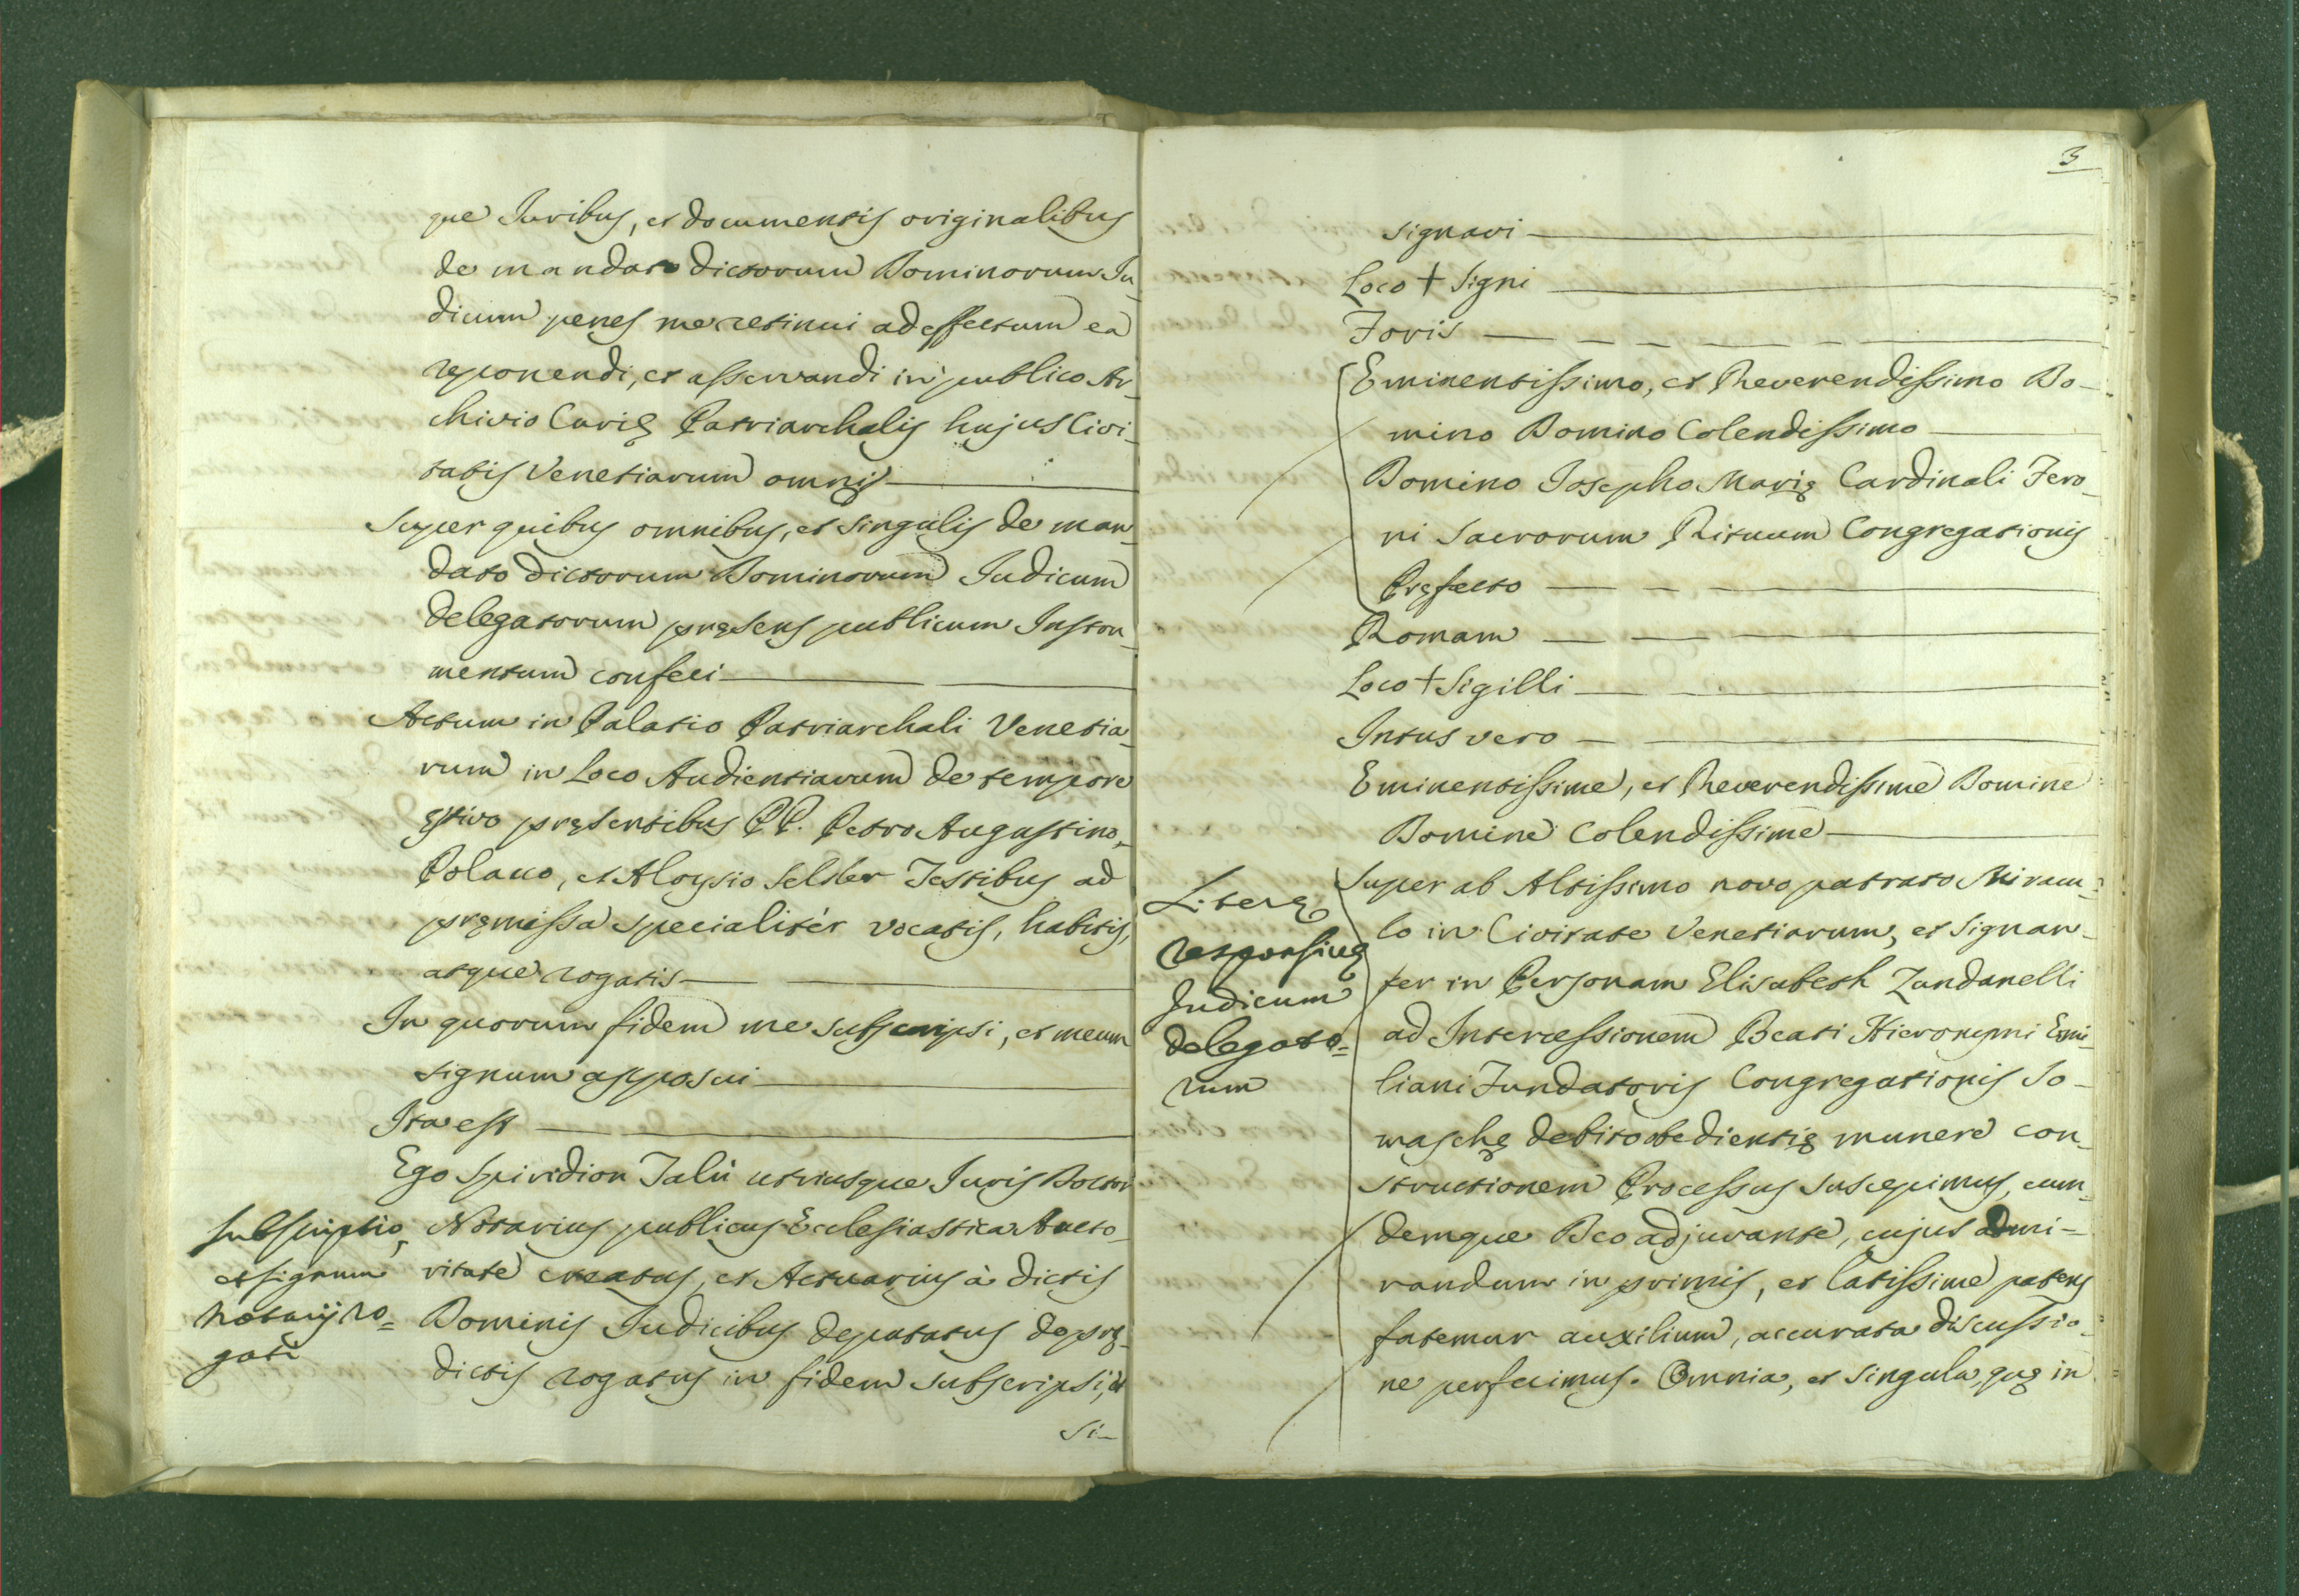 que Juribus, et documentis originalibus
de mandato dictorum Dominorum Ju_
dicum penes me retinui ad effectum ea
reponendi, et asservandi in publico Ar_
chivio Curię Patriarchalis hujus Civi_
tatis Venetiarum omnis
Super quibus omnibus, et singulis de man_
dato dictorum Dominorum Judicum
Delegatorum pręsens publicum Instru_
mentum confeci
Actum in Palatio Patriarchali Venetia_
rum in Loco Audientiarum de tempore
ęstivo pręsentibus PP. Petro Augustino
Polacco, et Aloysio Selder Testibus ad
pręmissa specialitèr vocatis, habitis,
atque rogatis
In quorum fidem me subscripsi, et meum
signum apposui
Ita est
Ego Spiridion Talù utriusque Juris Doctor
Notarius publicus Ecclesiastica Aucto_
ritate creatus, et Actuarius à dictis
Dominis Judicibus deputatus de prę_
dictis rogatus in fidem subscripsi, et
si_
subscriptio,
et signum
notarij ro=
gati
3
signavi
Loco + Signi
Foris
Eminentissimo, et Reverendissimo Do_
mino Domino Colendissimo
Domino Josepho Marię Cardinali Fero_
ni Sacrorum Rituum Congregationis
Pręfecto
Romam
Loco + Sigilli
Intus vero
Eminentissime, et Reverendissime Domine
Domine Colendissime
Literę
responsivę
Judicum
delegato=
rum
Super ab Altissimo novo patrato Miracu_
lo in Civitate Venetiarum, et signan_
ter in Personam Elisabeth Zandanelli
ad Intercessionem Beati Hieronymi Emi_
liani Fundatoris Congregationis So_
maschę debito obedientię munere con_
structionem Processus suscepimus, eum_
demque Deo adjuvante, cujus admi_
randum in primis, et latissime patens
fatemur auxilium, accurata discussio_
ne perfecimus. Omnia, et singula, quę in